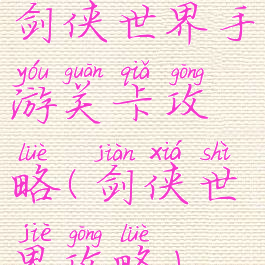 剑侠世界手
yóu guān qiǎ gōng
游关卡攻
lüè jiàn xiá shì
略(剑侠世
jiè gōng lüè
界攻略)